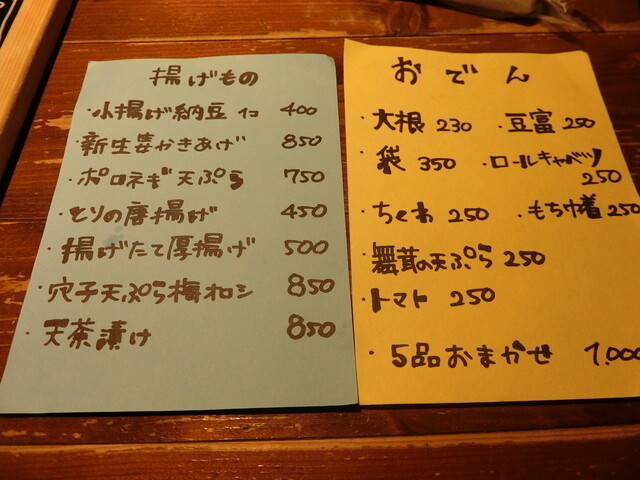 揚げもの
・小揚げ納豆 1コ 400
・新生姜かきあげ 850
・ポロネギ天ぷら 750
・とりの唐揚げ 450
・揚げたて厚揚げ 500
・穴子天ぷら梅オロシ 850
・天茶漬け 850
おでん
・大根 230 ・豆富 250
・袋 350 ・ロールキャベツ 250
・ちくわ 250 ・もち巾着 250
・舞茸の天ぷら 250
・トマト 250
・5品おまかせ 1,000